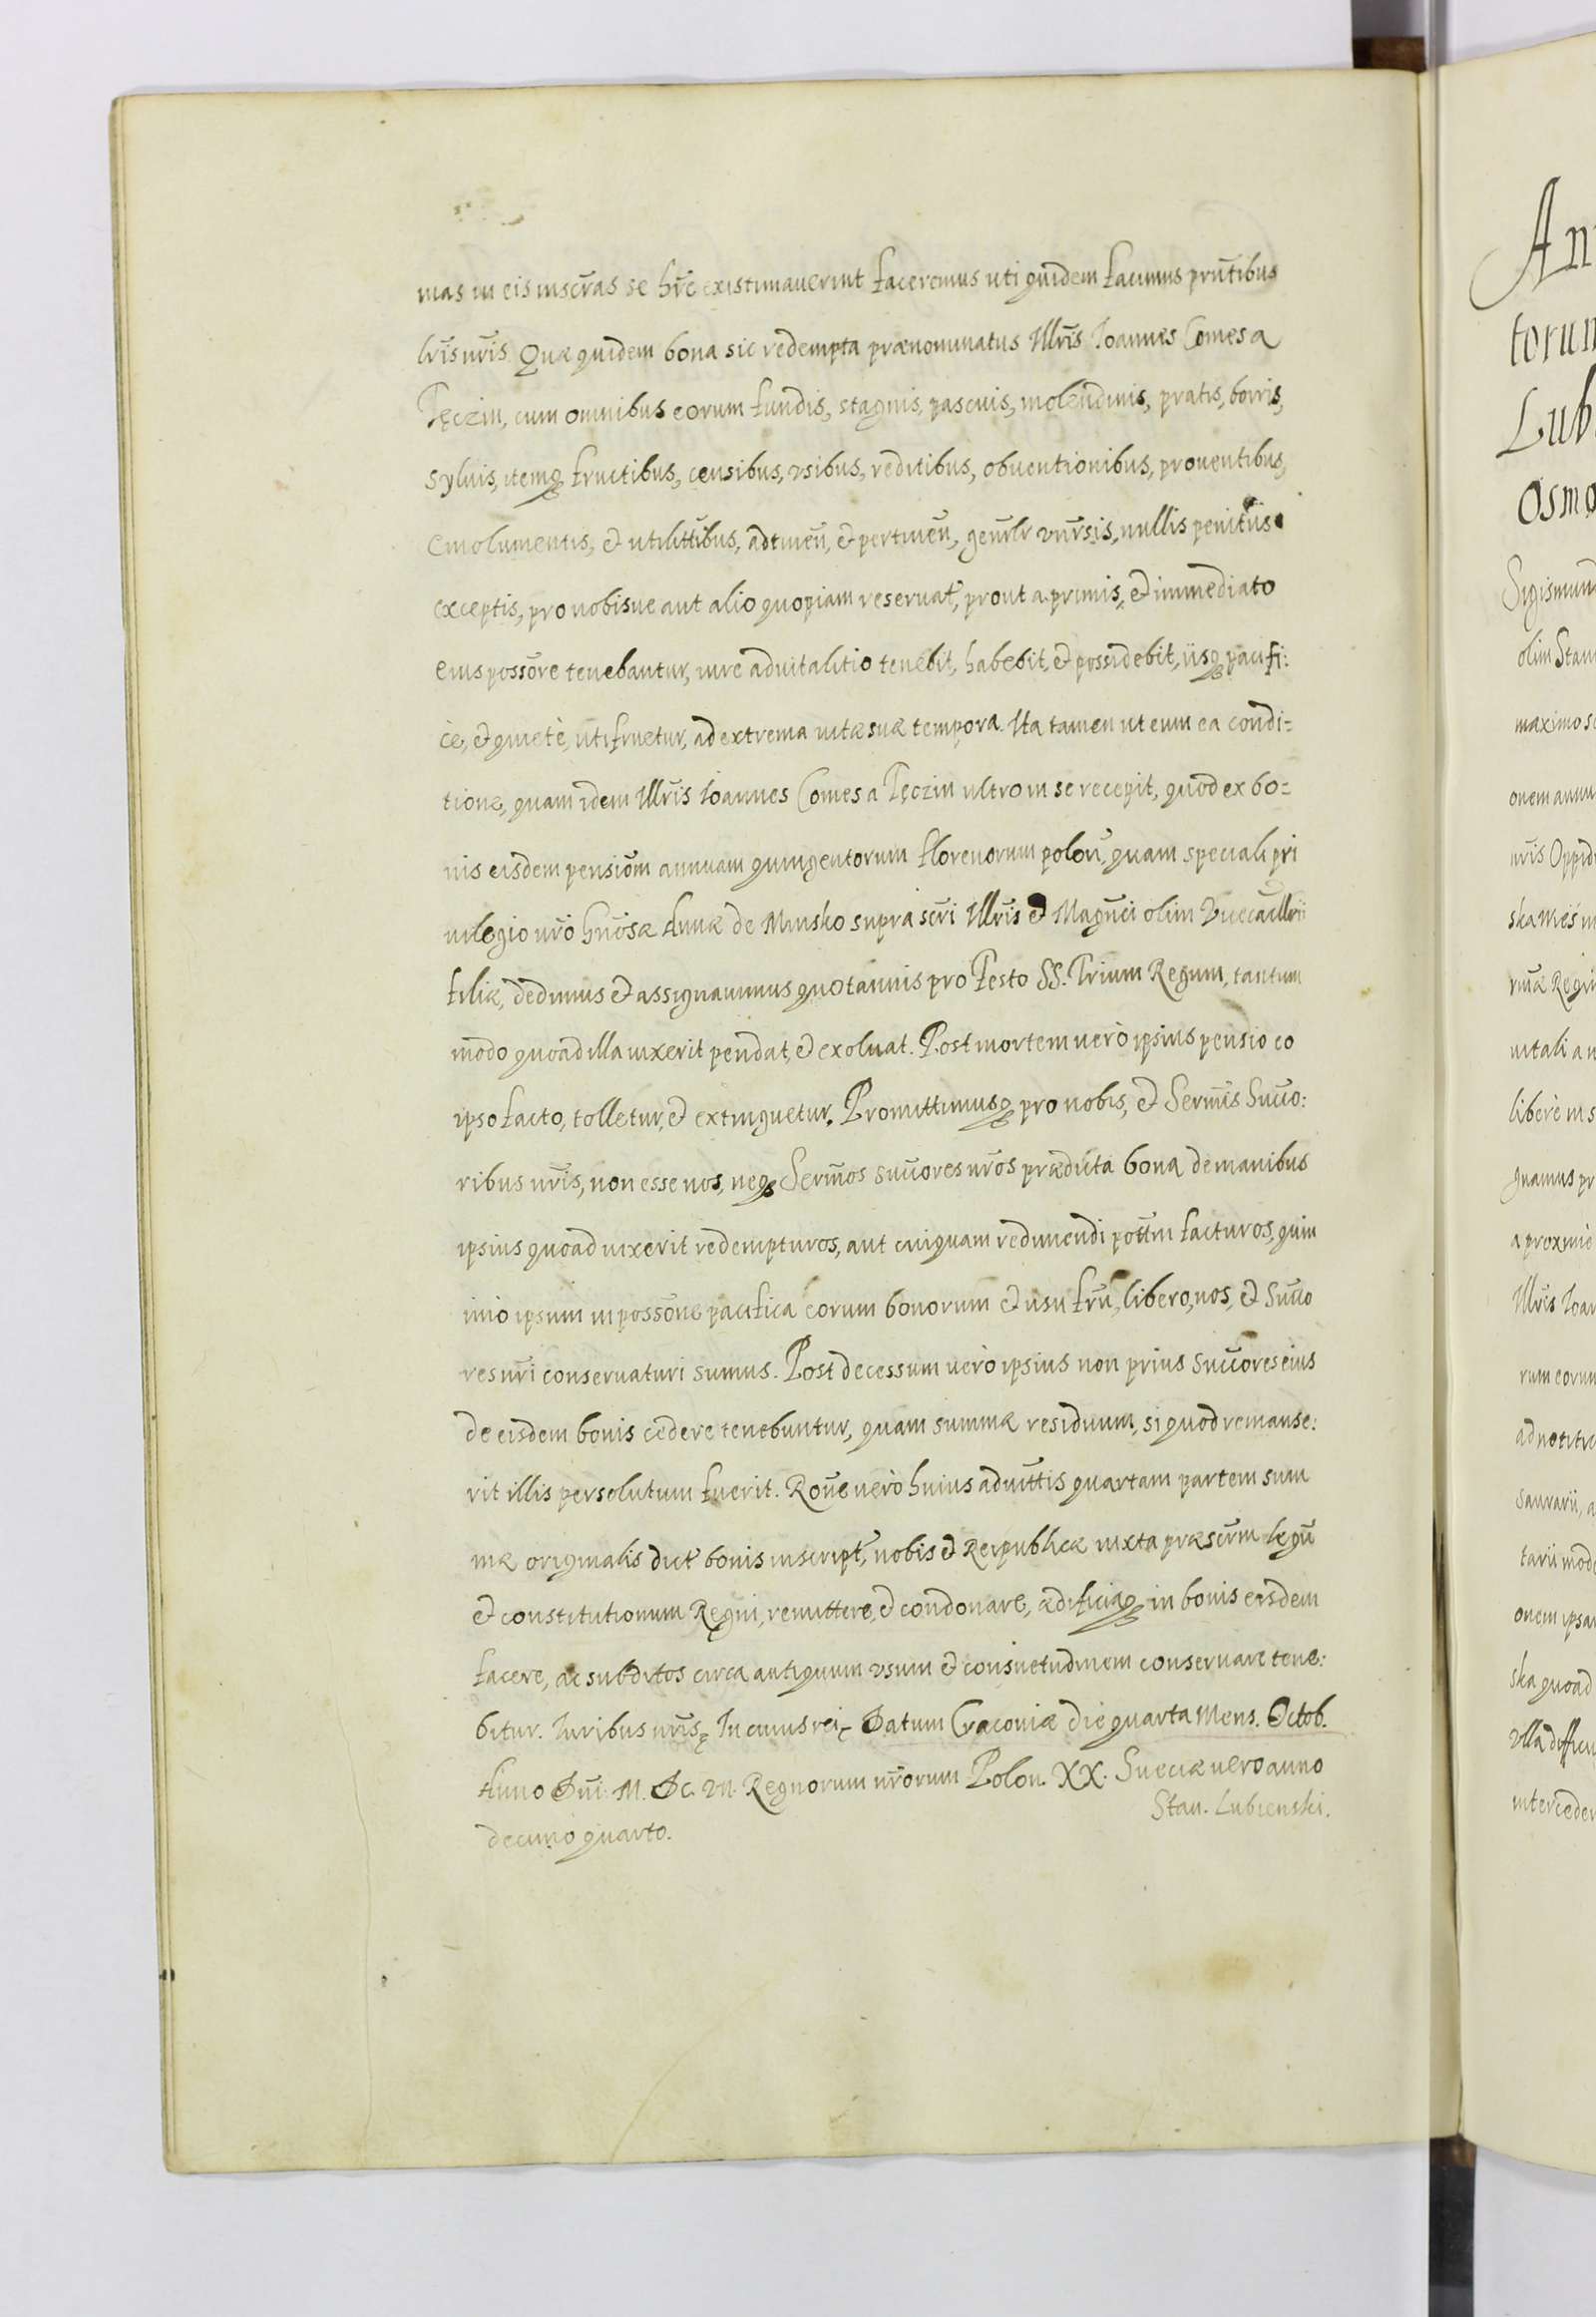 mas in eis inscr̃as se hr̃e existimauerint faceremus uti quidem facimus pñtibus
lr̃is nr̃is. Quæ quidem bona sic redempta prænominatus Illr̃is Ioannes Comes a
Tęczin, cum omnibus eorum fundis, stagnis, pascuis, molendinis, pratis, borris,
syluis, itemq fructibus, censibus, vsibus, reditibus, obuentionibus, prouentibus,
emolumentis, et utilittibus, adtineñ, et pertineñ, genr̃lr vnr̃sis, nullis penitus
exceptis, pro nobisue aut alio quopiam reseruat, prout a primis, et immediato
eius possore tenebantur, iure aduitalitio tenebit, habebit, et possidebit, iisq pacifi:
cè, et quietè, utifruetur, ad extrema uitæ suæ tempora. Ita tamen ut eum ea condi=
tione, quam idem Illr̃is Ioannes Comes a Tęczin ultro in se recepit, quod ex bo=
nis eisdem pensiom annuam quingentorum florenorum poloñ, quam speciali pri
uilegio nr̃o Annæ de Minsko supra scr̃i Illr̃is et Magñci olim Vicecancllrii
filiæ, dedimus et assignauimus quotannis pro Festo SS. Trium Regum, tantum
modo quoad illa uixerit pendat, et exoluat. Post mortem uerò ipsius pensio eo
ipso facto, tolletur, et extinguetur. Promittimusq pro nobis, et Sermis Succo:
ribus nr̃is, non esse nos, neq Sermos succores nr̃os prædicta bona de manibus
ipsius quoad uixerit redempturos, aut cuiquam redimendi pottm facturos, quin
imo ipsum in possone pacifica eorum bonorum et usu fru, libero, nos, et Succo
res nr̃i conseruaturi sumus. Post decessum uerò ipsius non prius succores eius
de eisdem bonis cedere tenebuntur, quam summæ residuum, si quod remanse:
rit illis persolutum fuerit. Rone uerò huius aduittis quartam partem sum
mæ originalis dict bonis inscript, nobis et Reipublicæ iuxta præscrm legũ
et constitutionum Regni, remittere, et condonare, ædificiaq in bonis eisdem
facere, ac subditos circa antiquum vsum et consuetudinem conseruare tene:
bitur. Iuribus nr̃is, In cuius rei, Datum Cracouiæ die quarta Mens. Octob.
Anno Dñi. M. DC. VII. Regnorum nr̃orum Polon. XX. Sueciæ uero anno
decimo quarto.
Stan. Lubienski.